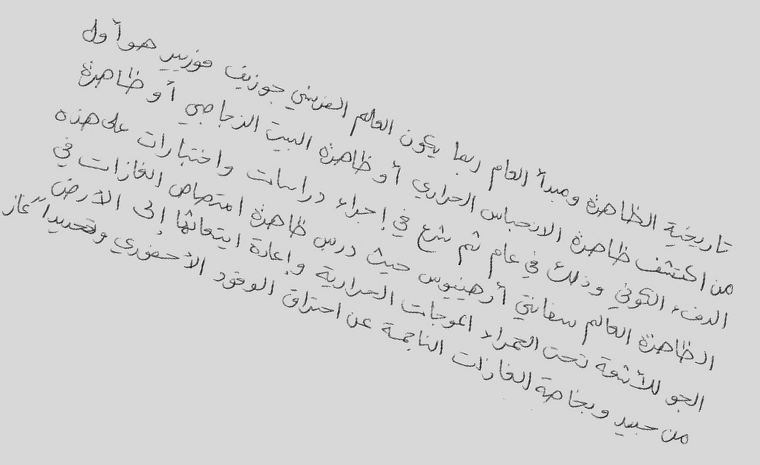 تاريخية الظاهرة ومبدأ العام ربما يكون العالم الفرنسي جوزيف فورييه هو أول
من اكتشف ظاهرة الاحباس الحراري أو ظاهرة البيت الزجاجي أو ظاهرة
الدفء الكوني وذلك في عام ثم شرع في إجراء دراسات واختبارات على هذه
الظاهرة العالم سفانتي أرهينيوس حيث درس ظاهرة امتصاص الغازات في
الجو للأشعة تحت الحمراء الموجات الحرارية وإعادة ابتعاثها إلى الأرض
من جديد وبخاصة الغازات الناجمة عن احتراق الوقود الأحفوري وتحديداً غاز